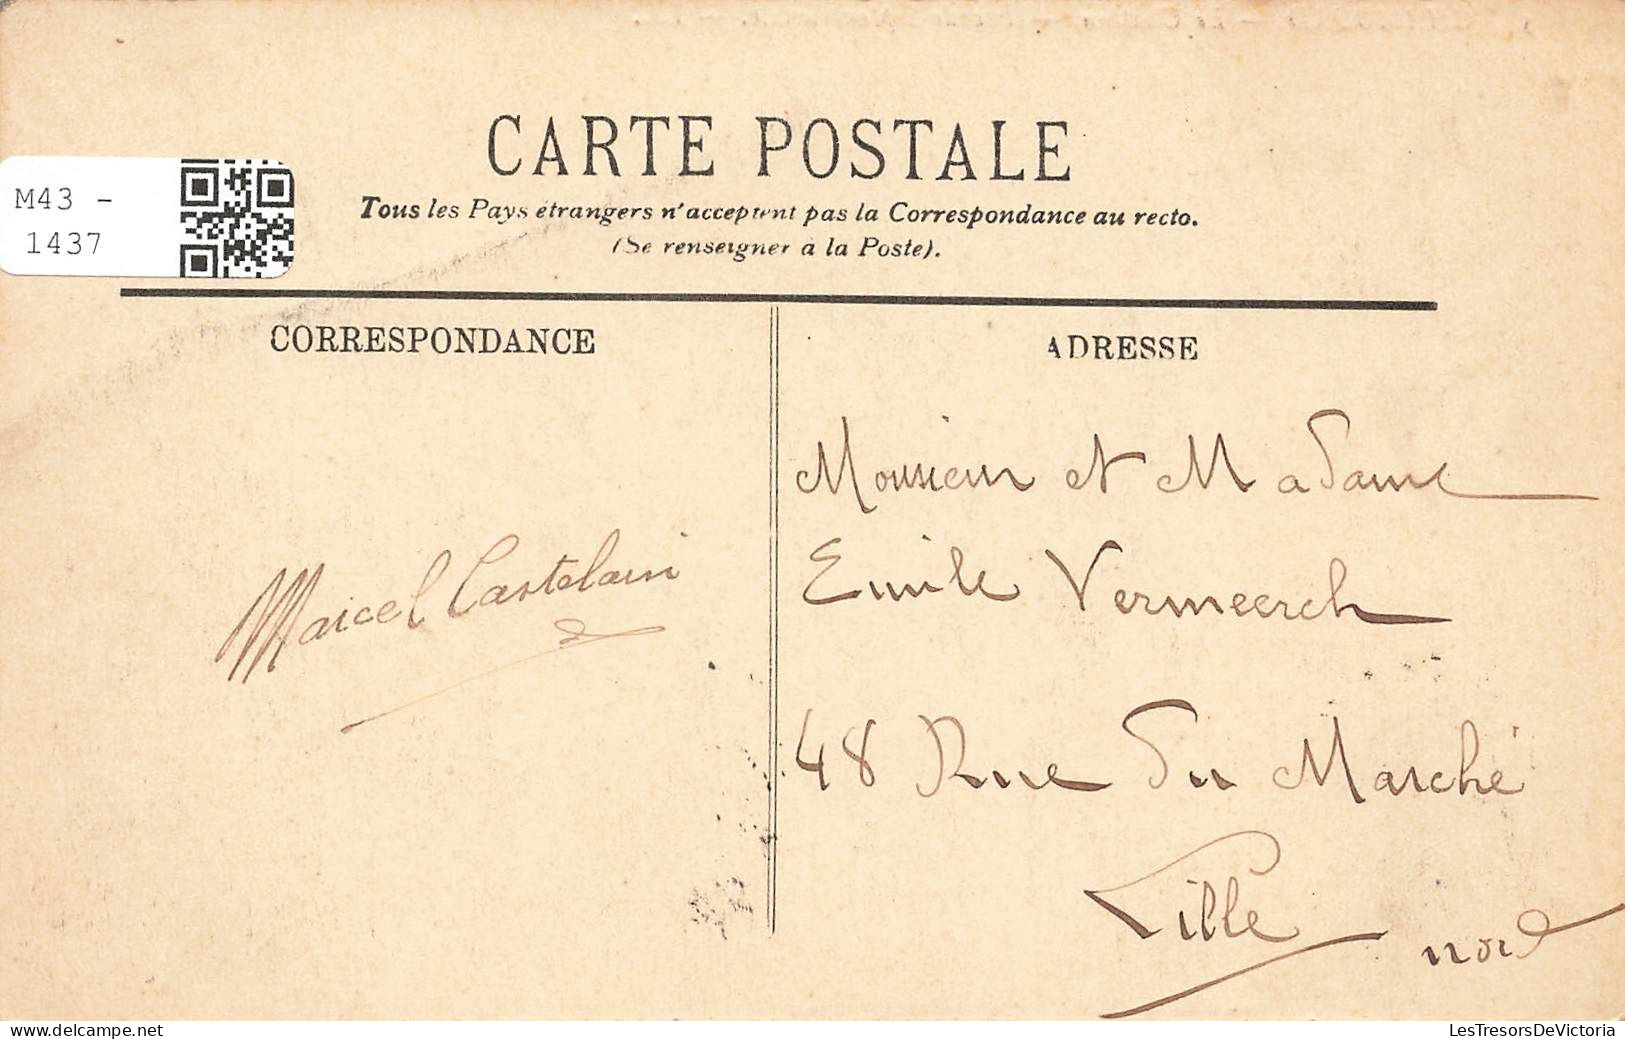 M43 -
1437
CARTE POSTALE
Tous les Pays étrangers n'acceptent pas la Correspondance au recto.
(Se renseigner à la Poste).
CORRESPONDANCE
ADRESSE
Marcel Castelain
Monsieur et Madame
Emile Vermeerch
48 Rue du Marché
Lille
nord
LesTresorsDeVictoria
delcampe.net